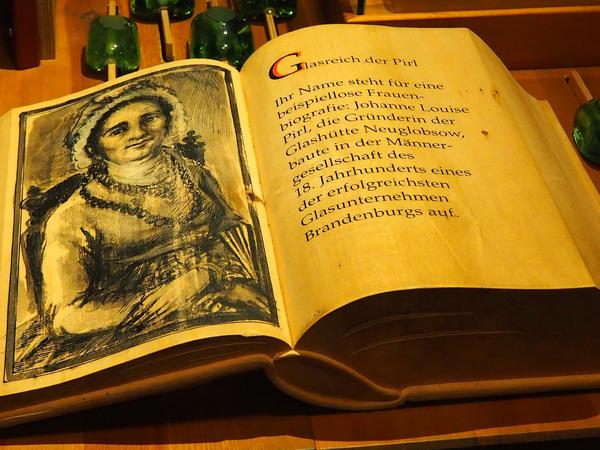 Glasreich der Pirl
Ihr Name steht für eine
beispiellose Frauen-
biografie: Johanne Louise
Pirl, die Gründerin der
Glashütte Neuglobsow,
baute in der Männer-
gesellschaft des
18. Jahrhunderts eines
der erfolgreichsten
Glasunternehmen
Brandenburgs auf.